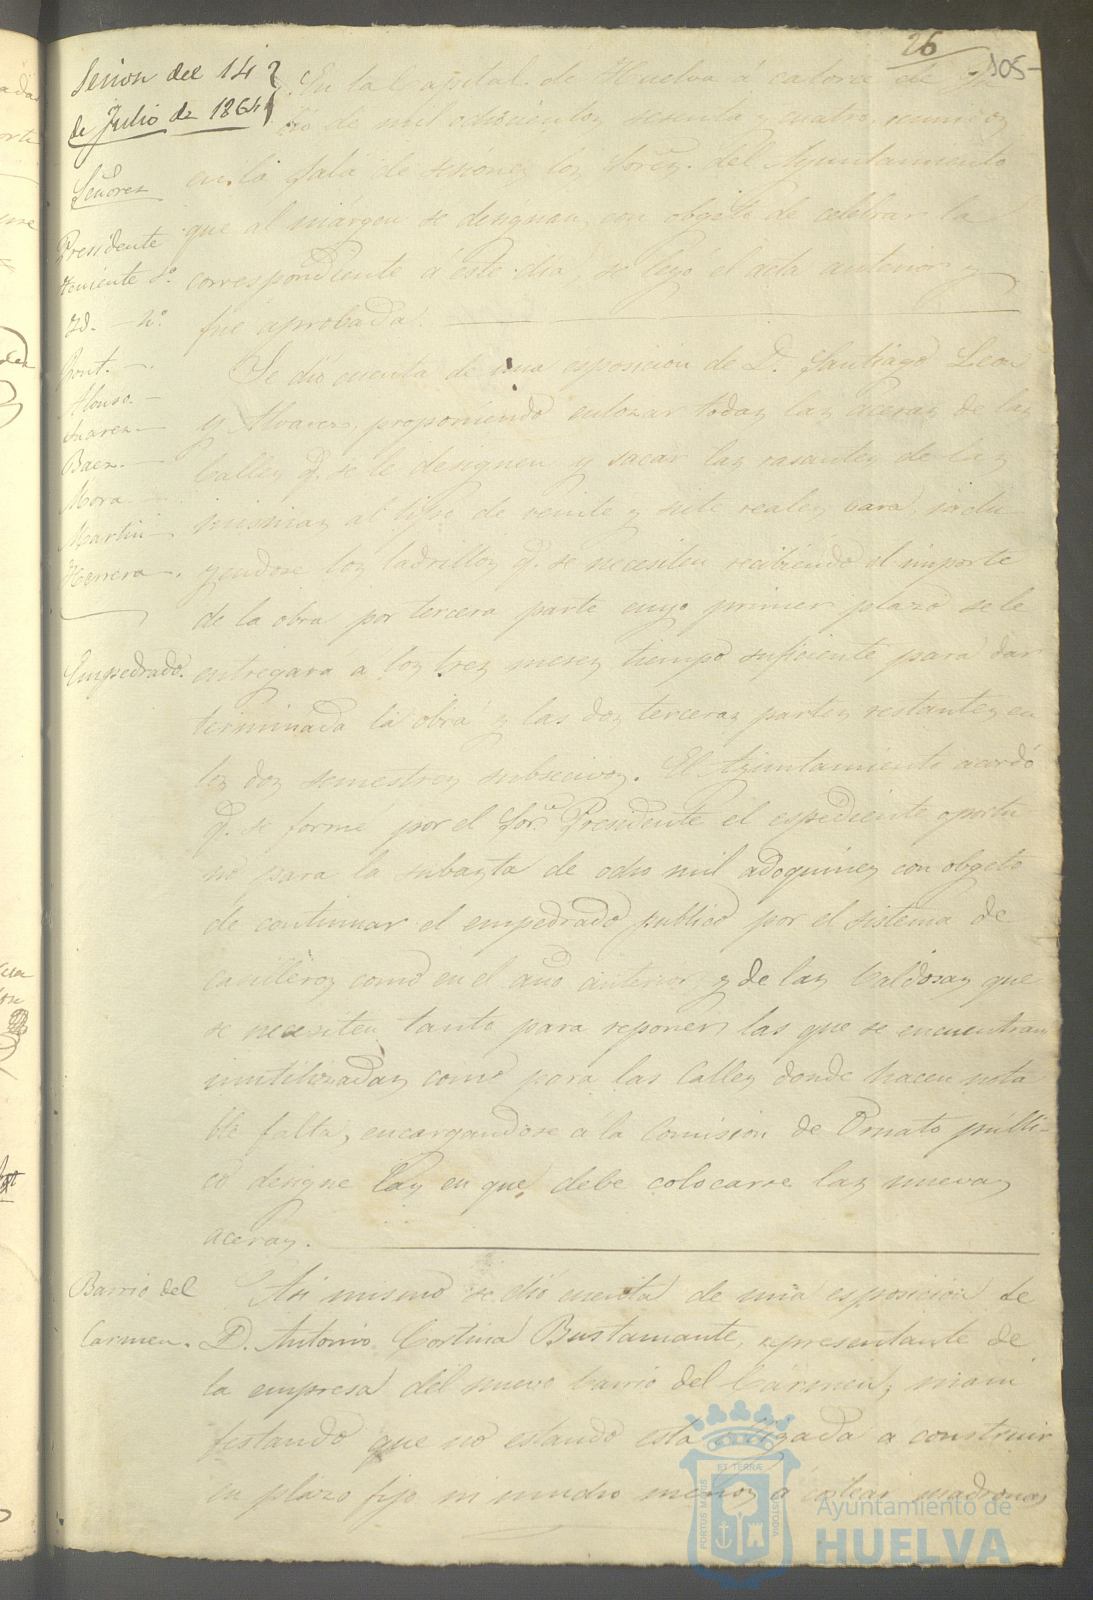 26
105-
Sesion del 14
de Julio de 1864
Señores
Presidente
Teniente 1º
Yd. - 2º
Pont.
Alonso.
Suarez
Baez.
Mora
Martin
Herrera.
En la Capital de Huelva á catorce de Ju
lio de mil ochocientos sesenta y cuatro, reunidos
en la Sala de sesiones los Sores. del Ayuntamiento
que al márgen se designan, con obgeto de celebrar la
correspondiente á este dia, se leyó el acta anterior y
fué aprobada.
Se dió cuenta de una esposicion de D. Santiago Leon
y Alvarez, proponiendo enlozar todas las aceras de las
Calles q. se le designen y sacar las rasantes de las
mismas al tipo de veinte y siete reales vara, inclu
yendose los ladrillos q. se necesiten recibiendo el importe
de la obra por tercera parte cuyo primer plazo se le
Empedrado.
entregará á los tres meses tiempo suficiente para dar
terminada la obra y las dos terceras partes restantes en
los dos semestres subsecivos. El Ayuntamiento acordó
q. se forme por el Sor. Presidente el espediente oportu
no para la subasta de ocho mil adoquines con obgeto
de continuar el empedrado publico por el sistema de
como en el año anterior y de las Baldosas que
se necesiten tanto para reponer las que se encuentran
inutilizadas como para las Calles donde hacen nota
ble falta, encargandose á la Comision de Ornato públi-
co designe las en que debe colocarse las nuevas
aceras.
Barrio del
Carmen.
Asi mismo se dió cuenta de una esposicion de
D. Antonio Cortina Bustamante, representante de
la empresa del nuevo barrio del Cármen, mani
festando que no estando esta obligada á construir
en plazo fijo ni mucho menos á costear madronas
PORTUS MARIS
ET TERRÆ
CUSTODIA
Ayuntamiento de
HUELVA